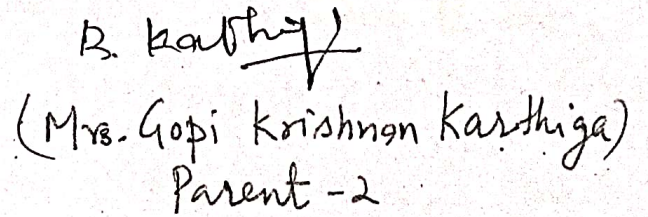 B. Karthiga
(Mrs. Gopi Krishnan Karthiga)
Parent - 2